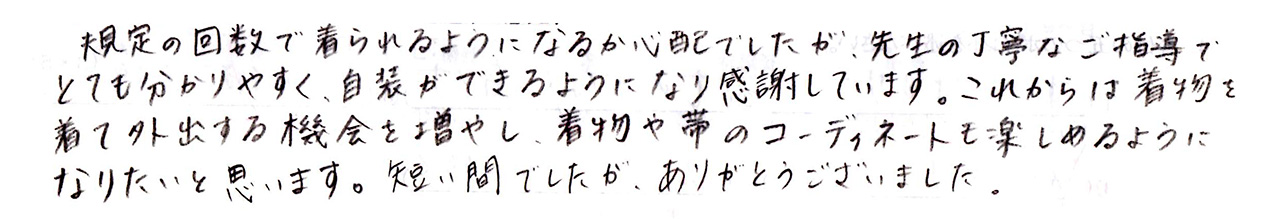 規定の回数で着られるようになるか心配でしたが、先生の丁寧なご指導で
とても分かりやすく、自装ができるようになり感謝しています。これからは着物を
着て外出する機会を増やし、着物や帯のコーディネートも楽しめるように
なりたいと思います。短い間でしたが、ありがとうございました。